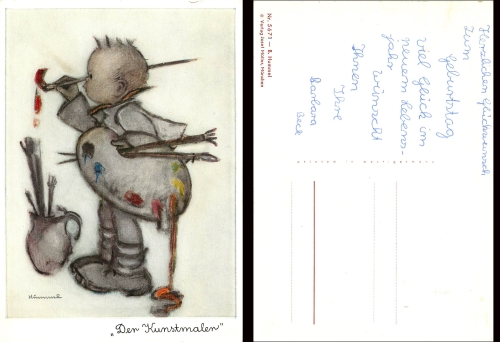 Hummel
„Der Kunstmaler"
Nr. 5671 – B. Hummel
© Verlag Josef Müller, München
Herzlichen Glückwunsch
zum
Geburtstag
viel Glück im
neuem Lebens-
jahr wünscht
Ihnen
Ihre
Barbara
Beck
printed in west-germany